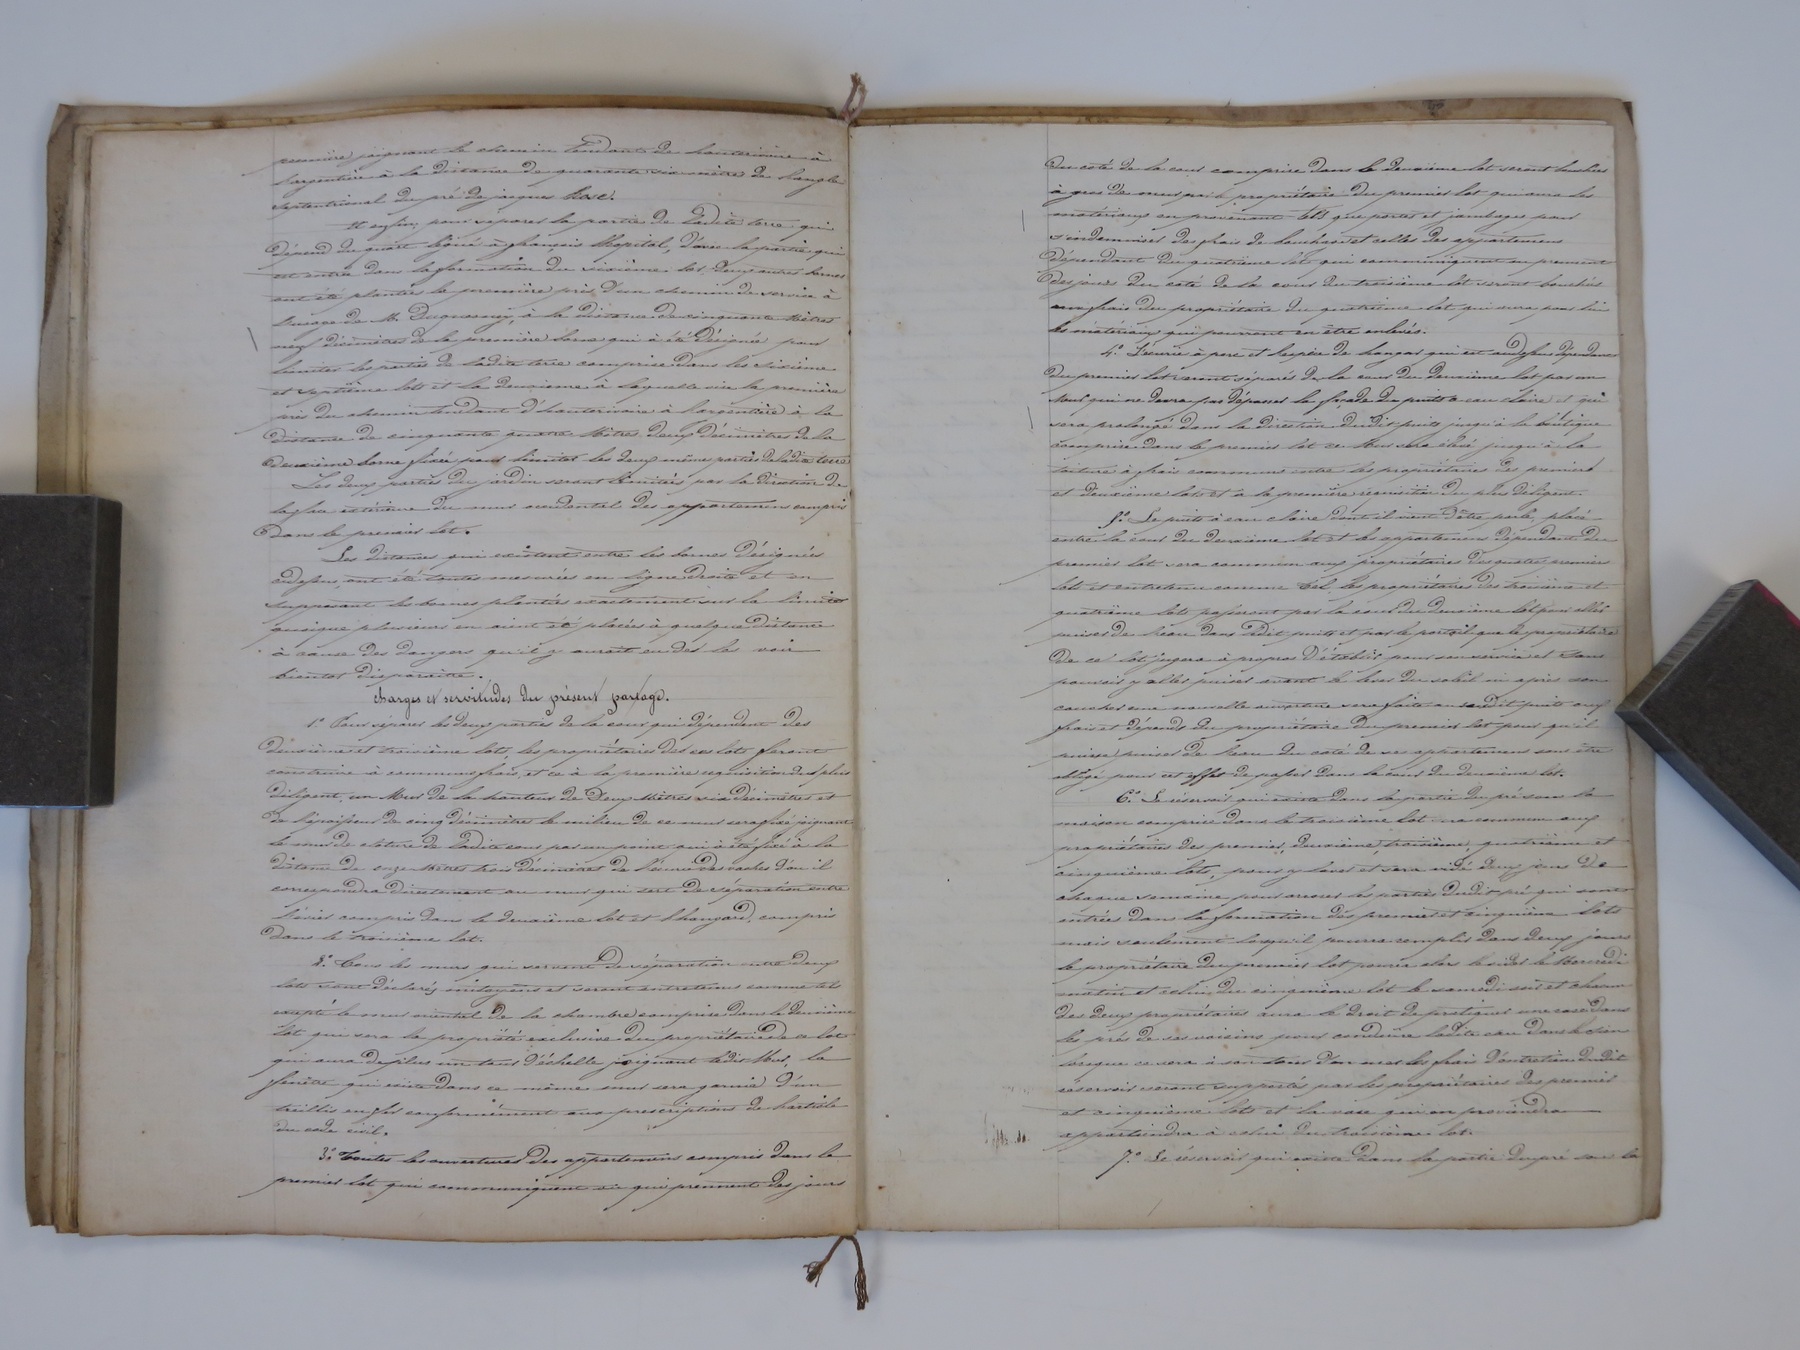 première joignant le chemin tendant de hauterivoire à
l'argentière à la distance de quarante six mètres de l'angle
septentrional du pré de jacques Rose.
Et enfin, pour séparer la partie de ladite terre qui
dépend du quart légué à françois Thopital, d'avec la partie qui
est entrée dans la formation du sixième lot, deux autres bornes
ont été plantées la première près d'un chemin de service à
l'usage de M. Duguesney, à la distance de cinquante mètres
neuf décimètres de la première borne qui a été désignée pour
limiter les parties de ladite terre comprise dans les sixième
et septième lots et la deuxième à laquelle vise la première
près du chemin tendant d'hauterivoire à l'argentière à la
distance de cinquante quatre Mètres deux décimètres de la
deuxième borne fixée pour limiter les deux mêmes parties de ladite terre
Les deux parties du jardin seront limitées par la direction de
la face extérieure du mur occidental des appartemens compris
dans le premier lot.
Les distances qui existent entre les bornes désignées
cidessus, ont été toutes mesurées en ligne droite et en
supposant les bornes plantées exactement sur la limite
quoique plusieurs en aient été placées à quelque distance
à cause des dangers qu'il y aurait eu de les voir
bientôt disparaitre.
Charges et servitudes du présent partage.
1.° Pour séparer les deux parties de la cour qui dépendent des
deuxième et troisième lots, les propriétaires des ces lots feront
construire à communs frais, et ce à la première réquisition du plus
diligent, un Mur de la hauteur de Deux Mètres six décimètres et
de l'épaisseur de cinq décimètres le milieu de ce mur sera fixé joignant
le mur de cloture de ladite cour par un point qui a été fixé à la
distance de onze Mètres trois décimètres de l'écurie des vaches d'où il
correspondra directement au mur qui sert de séparation entre
l'évier compris dans le deuxième lot et l'hangard, compris
dans le troisième lot.
2.° Tous les murs qui servent de séparation entre deux
lots sont déclarés mitoyens et seront entretenus comme tels
excepté le mur oriental de la chambre comprise dans le deuxième
lot qui sera la propriété exclusive du propriétaire de ce lot
qui aura de plus un tour d'échelle joignant ledit Mur, la
fenêtre qui existe dans ce même mur sera garnie d'un
treillis en fer conformément aux prescriptions de l'article
du code civil.
3.° Toutes les ouvertures des appartemens compris dans le
premier lot qui communiquent ou qui prennent des jours
du coté de la cour comprise dans le deuxième lot seront bouchées
à gros de mur par le propriétaire du premier lot qui aura les
matériaux en provenant tels que portes et jambages pour
s'indemniser des frais de bouchage et celles des appartemens
dépendant du quatrième lot, qui communiquent ou prennent
des jours du coté de la cour du troisième lot seront bouchées
aux frais du propriétaire du quatrième lot qui aura pour lui
les matériaux qui pourront en être enlevés.
4.° L'écurie à porc et l'espèce de hangar qui est au dessus dépendant
du premier lot seront séparés de la cour du deuxième lot par un
Mur qui ne devra pas dépasser la façade du puits à eau claire et qui
sera prolongé dans la direction dudit puits jusqu'à la boutique
comprise dans le premier lot ce Mur sera élevé jusqu'à la
toiture à frais communs entre les propriétaires des premier
et deuxième lots et à la première réquisition du plus diligent.
5.° Le puits à eau claire dont il vient d'être parlé, placé
entre la cour du deuxième lot et les appartemens dépendant du
premier lot sera commun aux propriétaires des quatre premiers
lots et entretenu comme tel les propriétaires des troisième et
quatrième lots passeront par la cour du deuxième lot pour aller
puiser de l'eau dans ledit puits et par le portail que le propriétaire
de ce lot jugera à propos d'établir pour son service et sans
pouvoir y aller puiser avant le lever du soleil ni après son
coucher une nouvelle ouverture sera faite au susdit puits aux
frais et dépends du propriétaire du premier lot pour qu'il
puisse puiser de l'eau du coté de ses appartemens sans être
obligé pour cet effet de passer dans la cour du deuxième lot.
6.° Le réservoir qui existe dans la partie du pré sous la
maison comprise dans le troisième lot sera commun aux
propriétaires des premier, deuxième, troisième, quatrième et
cinquième lots, pour y laver et sera vidé deux jours de
chaque semaine pour arroser les parties dudit pré qui sont
entrées dans la formation des premier et cinquième lots
mais seulement lorsqu'il pourra remplir dans deux jours
le propriétaire du premier lot pourra alors le vider le Mercredi
matin et celui du cinquième lot le samedi soir et chacun
des deux propriétaires aura le droit de pratiquer une rase dans
les prés de ses voisins pour conduire ladite eau dans le sien
lorsque ce sera à son tour d'en user les frais d'entretien dudit
réservoir seront supportés par les propriétaires des premier
et cinquième lots et la vase qui en proviendra
appartiendra à celui du troisième lot.
7.° Le réservoir qui existe dans la partie du pré sous la